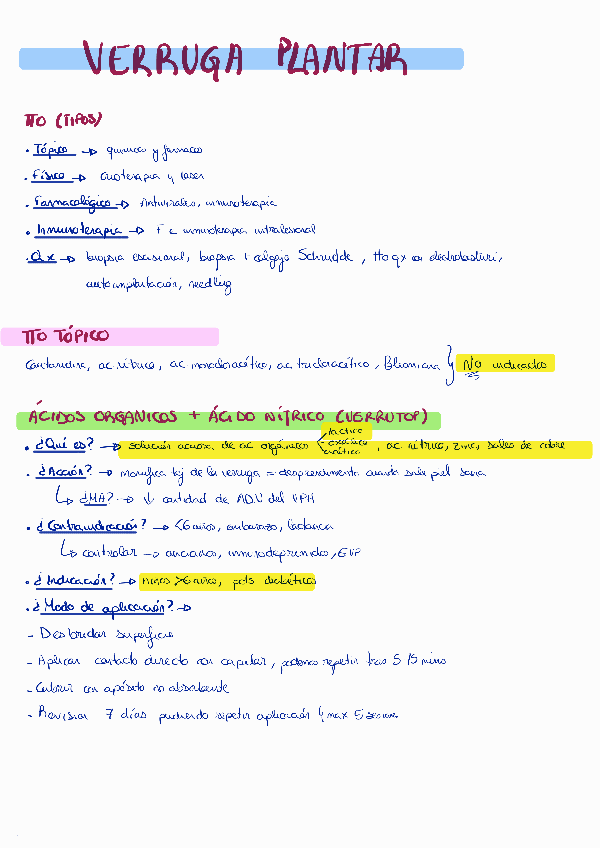 VERRUGA PLANTAR
TTO (TIPOS)
• Tópico → químicos y fármacos
• Físico → crioterapia y láser
• Farmacológico → Antivirales, inmunoterapia
• Inmunoterapia → inmunoterapia intralesional
• Qx → biopsia escisional, biopsia + colgajo Schrudde, tto qx con electrobisturí,
autoimplantación, needling
TTO TÓPICO
Cantaridina, ac. nítrico, ac. monocloracético, ac. tricloracético, Bleomicina } No indicados
ÁCIDOS ORGANICOS + ÁCIDO NÍTRICO (VERRUTOP)
• ¿Qué es? → solución acuosa de ac. orgánicos < láctico oxálico acético, ac. nítrico, zinc, sales de cobre
• ¿Acción? → momifica tej de la verruga = desprendimiento cuando sale piel sana
↳ ¿MA? → ↓ cantidad de ADN del VPH
• ¿Contraindicación? → <6 años, embarazo, lactancia
↳ controlar → ancianos, inmunodeprimidos, EVP
• ¿Indicación? → niños >6 años, pats diabéticos
• ¿Modo de aplicación? →
- Desbridar superficie
- Aplicar contacto directo con capilar, podemos repetir tras 5 mins
- Cubrir con apósito no absorbente
- Revisión 7 días pudiendo repetir aplicación 4 max 5 sesiones